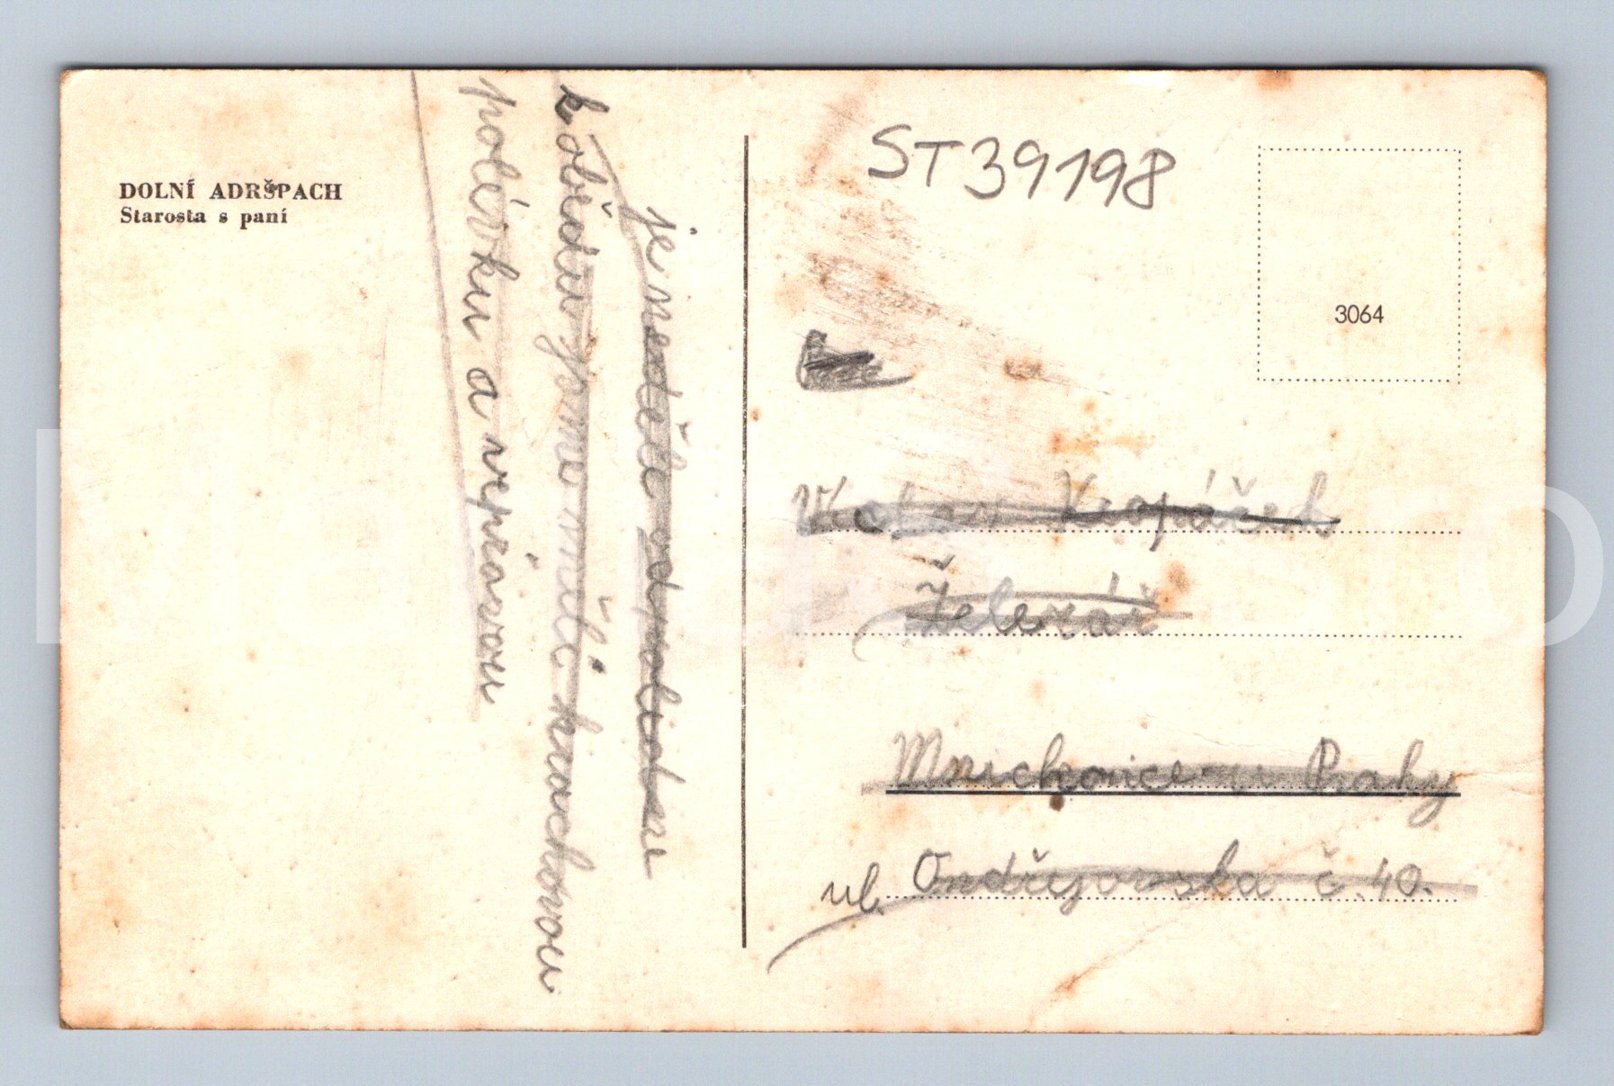 DOLNÍ ADRŠPACH
Starosta s paní
je neděle odpoledne
k obědu jsme měli hrachovou
polévku a vepřovou
ST39198
3064
Kropáček
Železář
Mnichovice u Prahy
ul. Ondřejovska č. 40.